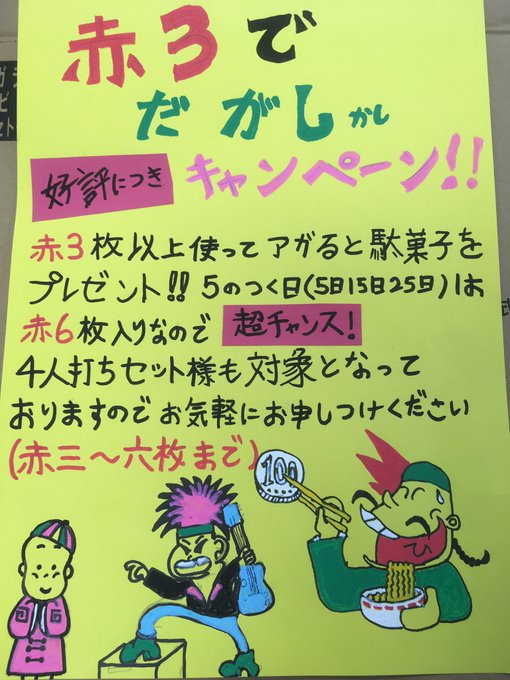 赤3で
だがしかし
好評につき
キャンペーン!!
赤3枚以上使ってアガると駄菓子を
プレゼント!! 5のつく日(5日15日25日)は
赤6枚入りなので 超チャンス!
4人打ちセット様も対象となって
おりますのでお気軽にお申しつけください
(赤三〜六枚まで)
100
ひ